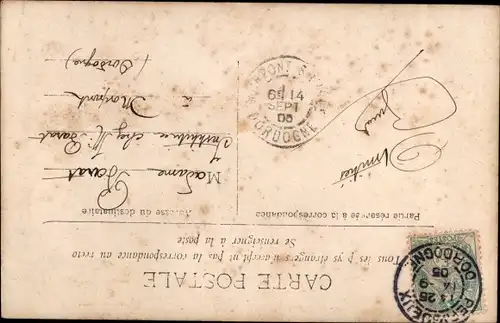 CARTE POSTALE
Tous les pays étrangers n'acceptent pas la correspondance au recto
Se renseigner à la poste
Partie réservée à la correspondance
Adresse du destinataire
Amitiés
Madame
Barat
Institutrice chez M. Barat
à
(Dordogne)
14 SEPT 05
DORDOGNE
PERIGUEUX
25
14 - 9
05
DORDOGNE